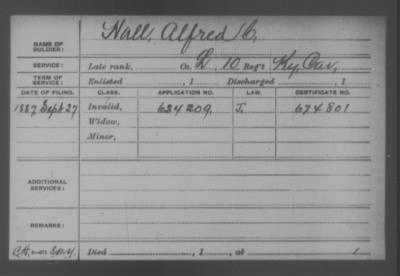 Nall, Alfred C.
NAME OF SOLDIER:
SERVICE: Late rank, Co. L, 10 Reg't Ky. Cav.
TERM OF SERVICE: Enlisted , 1 Discharged , 1
DATE OF FILING. CLASS. APPLICATION NO. LAW. CERTIFICATE NO.
1887 Sept 27 Invalid, 624209. J. 674801
Widow,
Minor,
ADDITIONAL SERVICES:
REMARKS:
Died , 1 , at 1